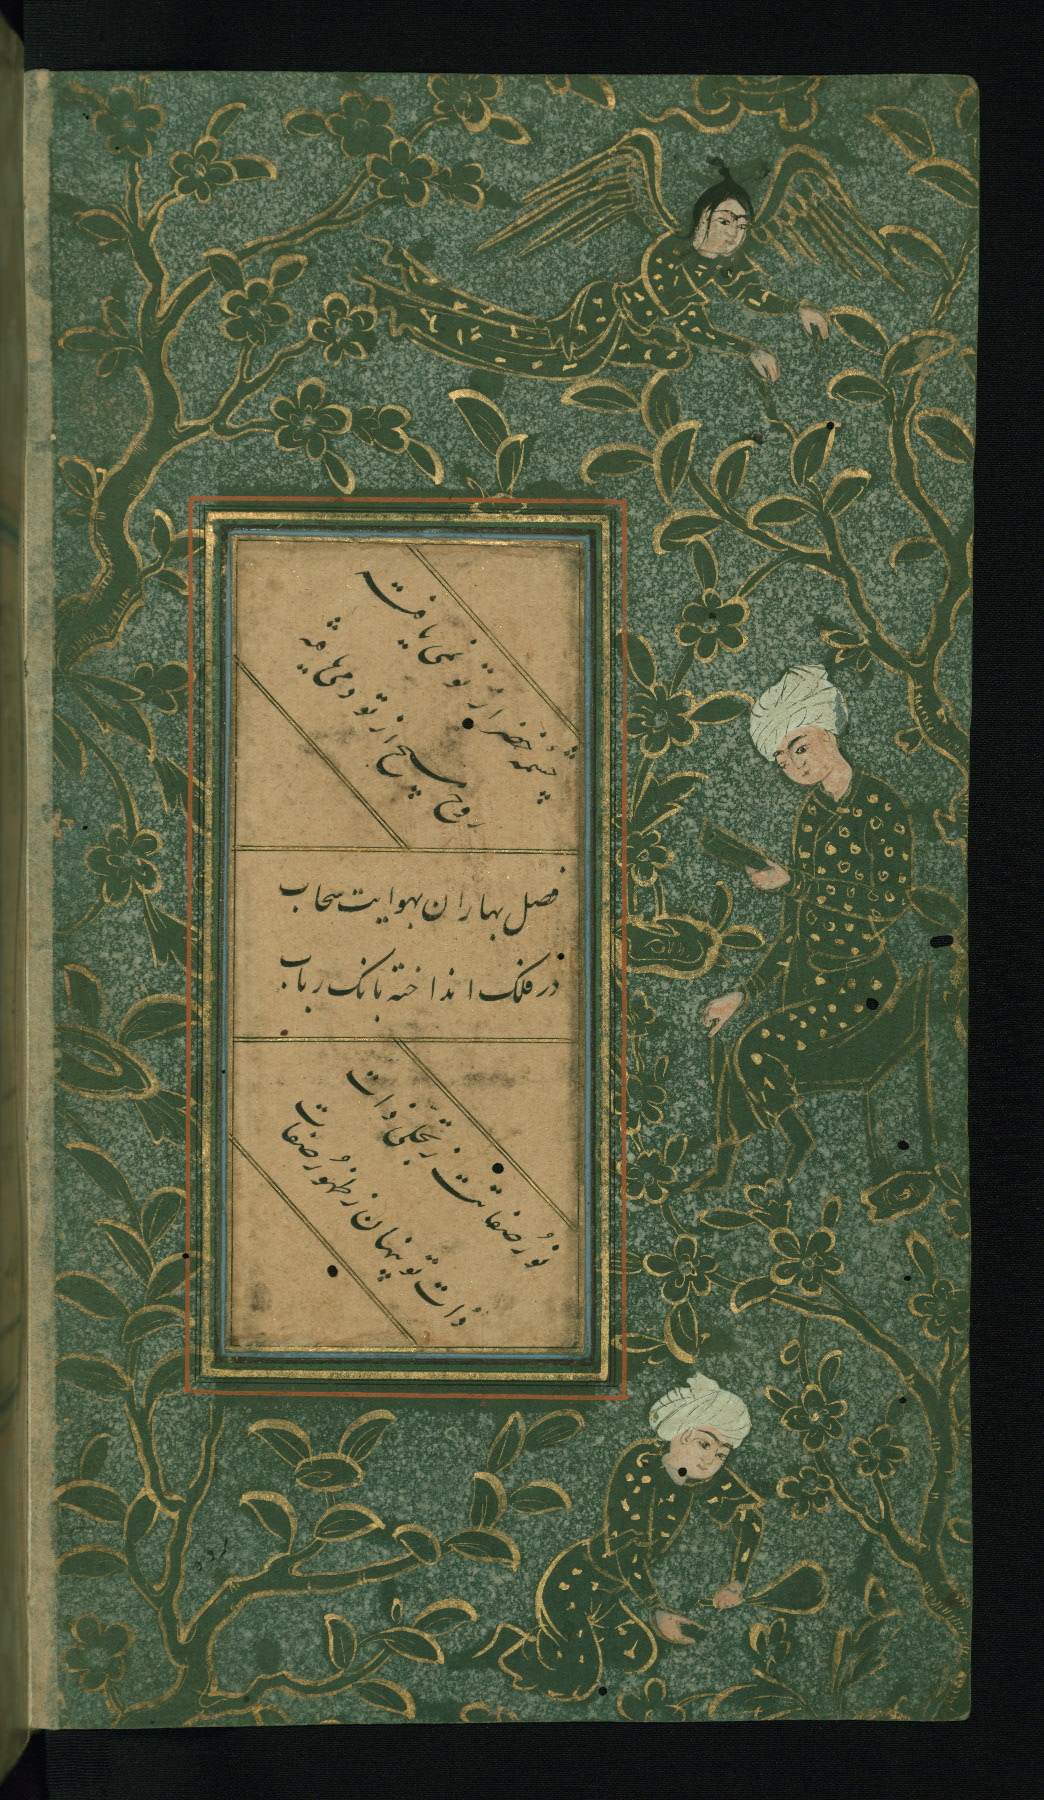 چشمهٔ خضر از تو نمی یافته
روح مسیح از تو دمی یافته
فصل بهاران بهوایت سحاب
در فلک انداخته بانک رباب
نور صفاتت ز تجلی ذات
ذات تو پنهان ز ظهور صفات